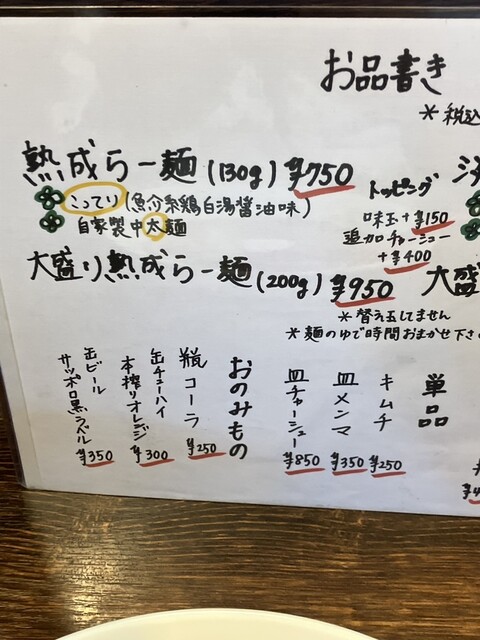 お品書き
＊税込
熟成らー麺(130g) ¥750
こってり(魚介系鶏白湯醤油味)
自家製中太麺
大盛り熟成らー麺(200g) ¥950
トッピング
味玉+¥150
追加チャーシュー
+¥400
大盛
＊替え玉してません
＊麺のゆで時間おまかせ下さ
単品
キムチ ¥250
皿メンマ ¥350
皿チャーシュー ¥850
おのみもの
瓶コーラ ¥250
缶チューハイ
本搾りオレンジ ¥300
缶ビール
サッポロ黒ラベル ¥350